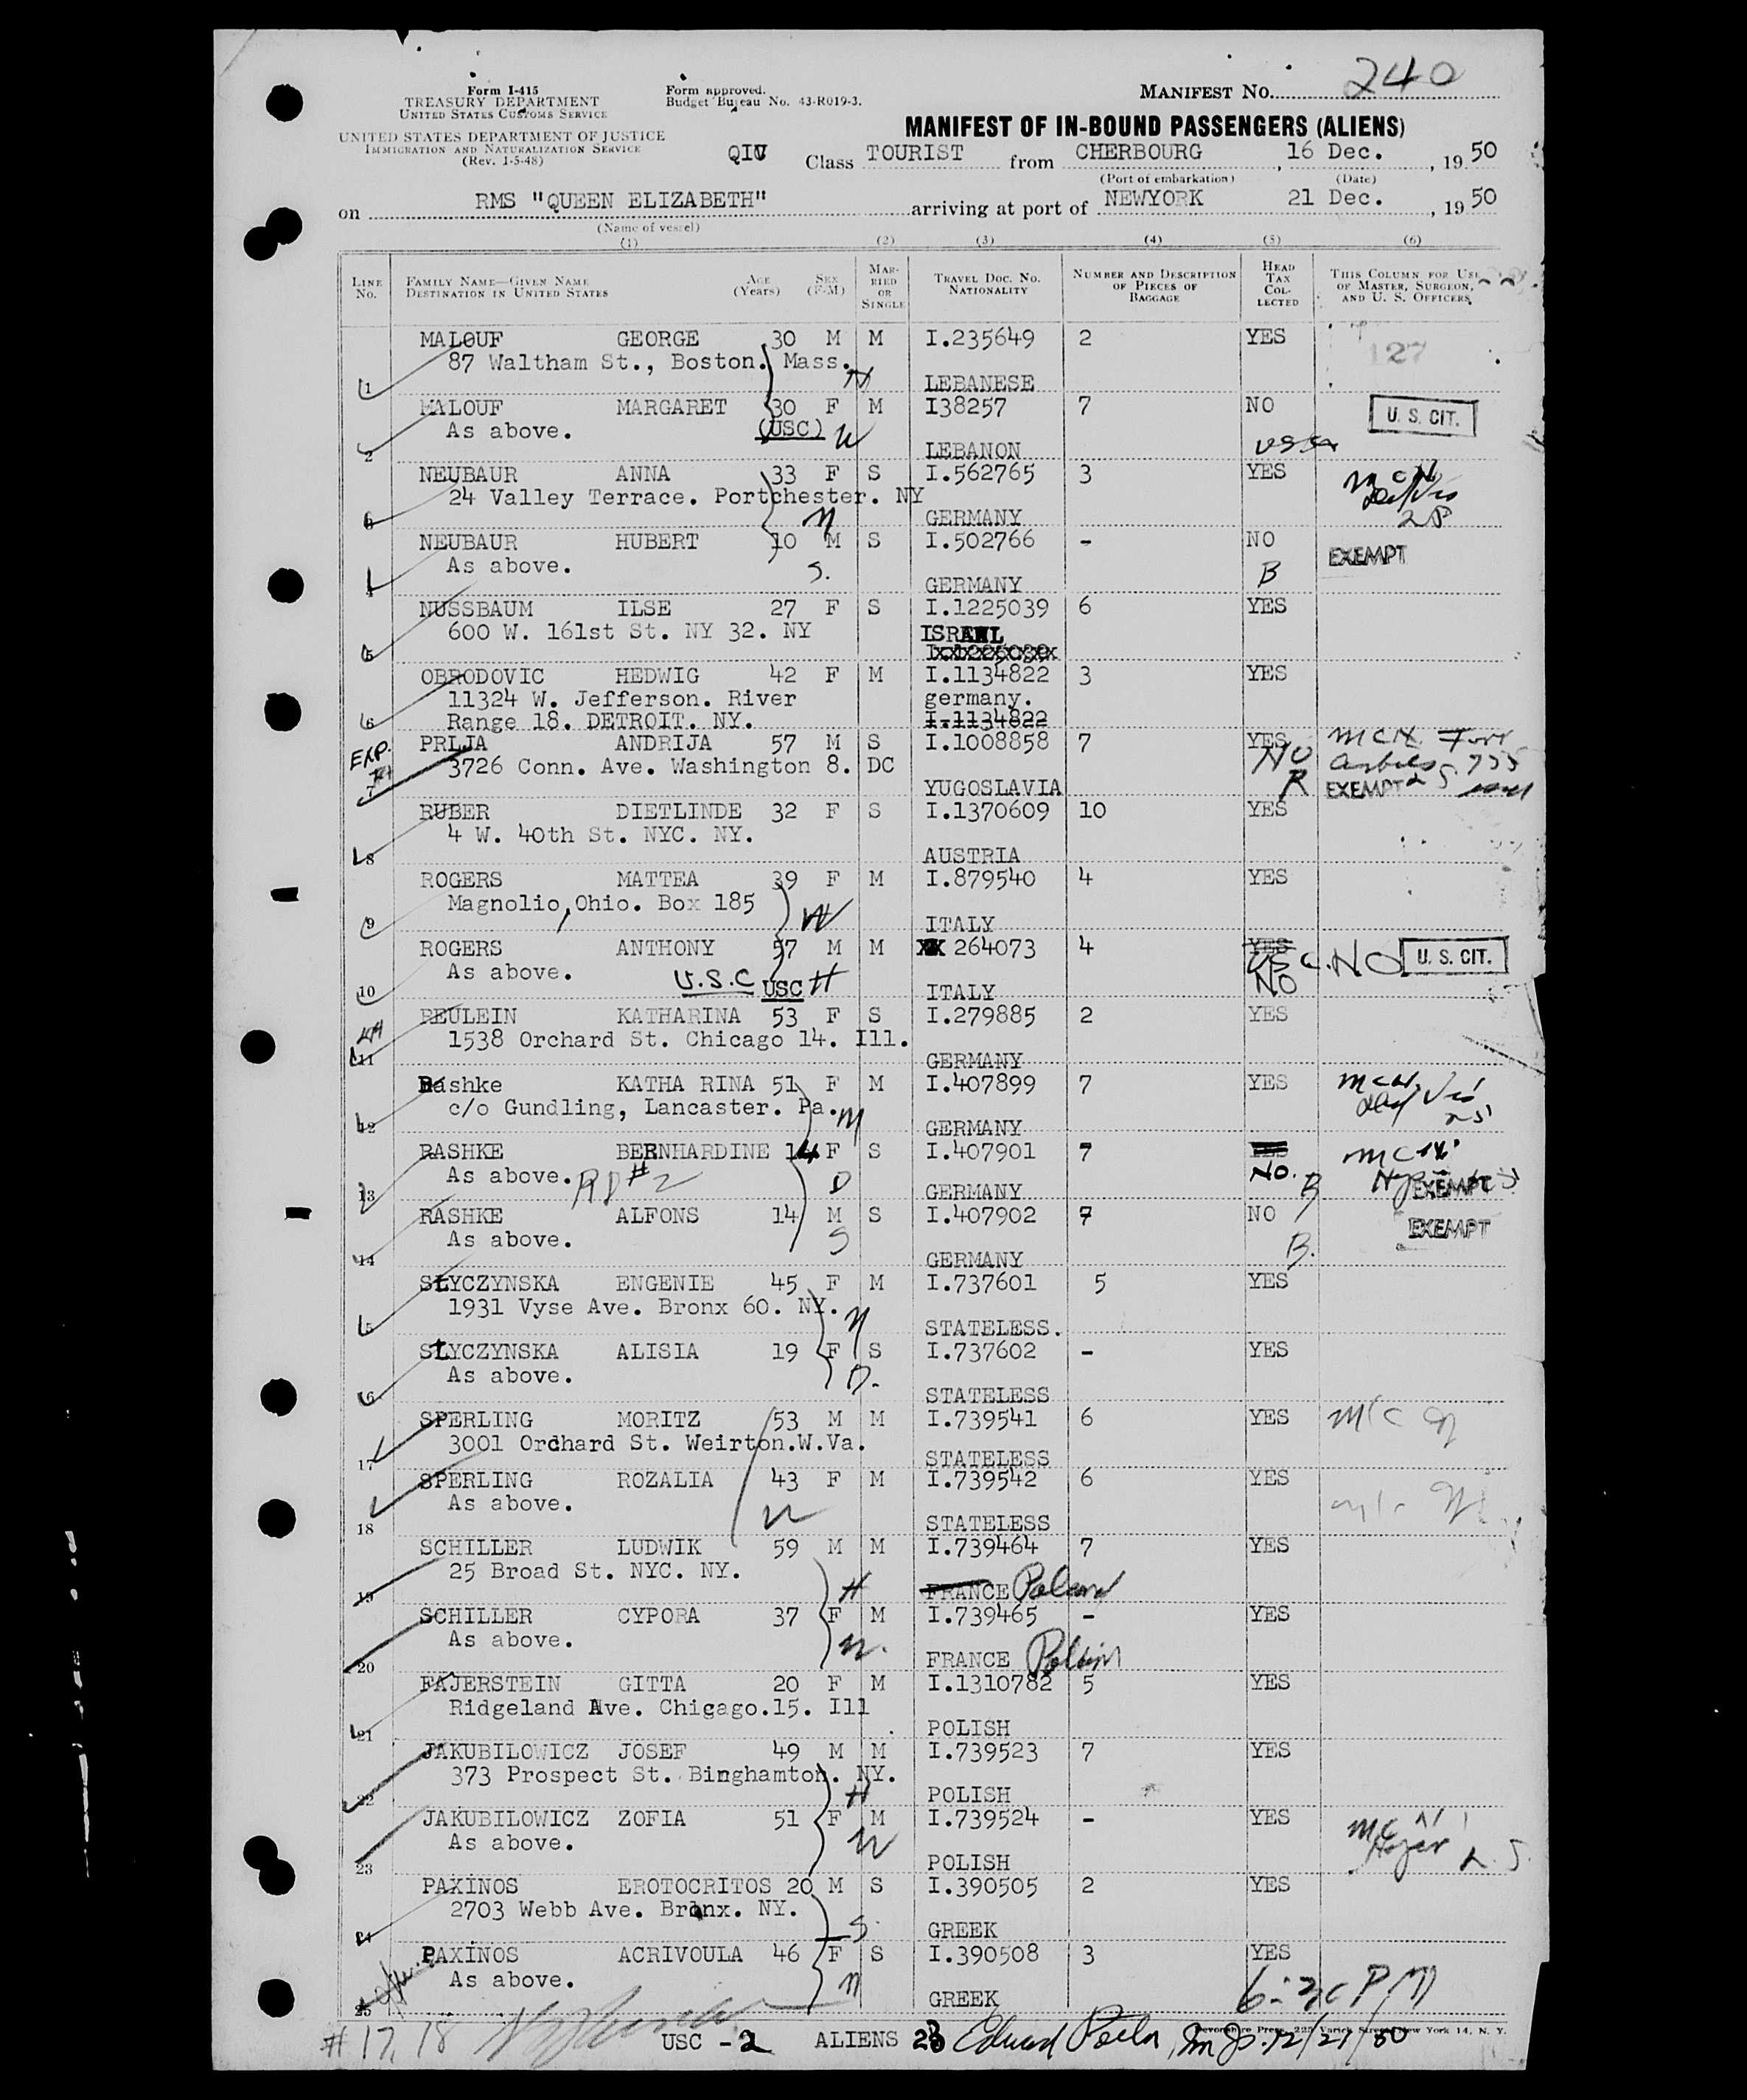 240
Form I-415
TREASURY DEPARTMENT
UNITED STATES CUSTOMS SERVICE
UNITED STATES DEPARTMENT OF JUSTICE
IMMIGRATION AND NATURALIZATION SERVICE
(Rev. 1-5-48)
Form approved.
Budget Bureau No. 43-R019-3.
MANIFEST No.
MANIFEST OF IN-BOUND PASSENGERS (ALIENS)
Class TOURIST from CHERBOURG, 16 Dec., 19 50
(Port of embarkation) (Date)
on RMS "QUEEN ELIZABETH" arriving at port of NEWYORK 21 Dec., 19 50
(Name of vessel)
(1) (2) (3) (4) (5) (6)
LINE No. FAMILY NAME—GIVEN NAME DESTINATION IN UNITED STATES AGE (Years) SEX (F-M) MARRIED OR SINGLE TRAVEL DOC. NO. NATIONALITY NUMBER AND DESCRIPTION OF PIECES OF BAGGAGE HEAD TAX COLLECTED THIS COLUMN FOR USE OF MASTER, SURGEON, AND U. S. OFFICERS
MALOUF GEORGE 30 M M I.235649 2 YES 127
87 Waltham St., Boston. Mass. H
1 LEBANESE
MALOUF MARGARET 30 F M I38257 7 NO U. S. CIT.
As above. (USC) W
2 LEBANON
NEUBAUR ANNA 33 F S I.562765 3 YES
24 Valley Terrace. Portchester. NY
3 GERMANY
NEUBAUR HUBERT 10 M S I.502766 - NO EXEMPT
As above. S. B
4 GERMANY
NUSSBAUM ILSE 27 F S I.1225039 6 YES
600 W. 161st St. NY 32. NY ISRAEL
5
OBRODOVIC HEDWIG 42 F M I.1134822 3 YES
11324 W. Jefferson. River germany.
6 Range 18. DETROIT. NY. I.1134822
EXP. PRLJA ANDRIJA 57 M S I.1008858 7 YES
3726 Conn. Ave. Washington 8. DC NO
7 YUGOSLAVIA R EXEMPT
RUBER DIETLINDE 32 F S I.1370609 10 YES
4 W. 40th St. NYC. NY.
8 AUSTRIA
ROGERS MATTEA 39 F M I.879540 4 YES
Magnolio, Ohio. Box 185 W
9 ITALY
ROGERS ANTHONY 57 M M 264073 4 YES U. S. CIT.
As above. U.S.C USC H USC. NO
10 ITALY NO
REULEIN KATHARINA 53 F S I.279885 2 YES
1538 Orchard St. Chicago 14. Ill.
11 GERMANY
Rashke KATHA RINA 51 F M I.407899 7 YES
c/o Gundling, Lancaster. Pa. M
12 GERMANY
RASHKE BERNHARDINE 14 F S I.407901 7 YES
As above. RD #2 D NO. B EXEMPT
13 GERMANY
RASHKE ALFONS 14 M S I.407902 7 NO EXEMPT
As above. S B.
14 GERMANY
SLYCZYNSKA ENGENIE 45 F M I.737601 5 YES
1931 Vyse Ave. Bronx 60. NY.
15 STATELESS.
SLYCZYNSKA ALISIA 19 F S I.737602 - YES
As above. D.
16 STATELESS
SPERLING MORITZ 53 M M I.739541 6 YES
3001 Orchard St. Weirton.W.Va.
17 STATELESS
SPERLING ROZALIA 43 F M I.739542 6 YES
As above. W
18 STATELESS
SCHILLER LUDWIK 59 M M I.739464 7 YES
25 Broad St. NYC. NY. H
19 FRANCE Poland
SCHILLER CYPORA 37 F M I.739465 - YES
As above. W.
20 FRANCE
FAJERSTEIN GITTA 20 F M I.1310782 5 YES
Ridgeland Ave. Chicago.15. Ill
21 POLISH
JAKUBILOWICZ JOSEF 49 M M I.739523 7 YES
373 Prospect St. Binghamton. NY. H
22 POLISH
JAKUBILOWICZ ZOFIA 51 F M I.739524 - YES
As above. W
23 POLISH
PAXINOS EROTOCRITOS 20 M S I.390505 2 YES
2703 Webb Ave. Bronx. NY. S
24 GREEK
PAXINOS ACRIVOULA 46 F S I.390508 3 YES
As above. M
25 GREEK
# 17, 18 USC - 2 ALIENS 23 12/21/50